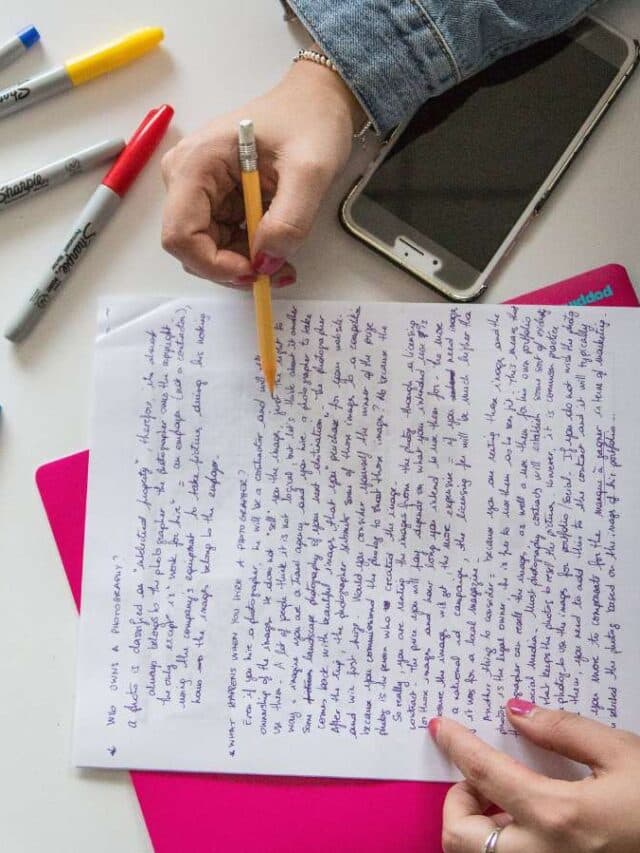 Sharpie
Sharpie
Sharpie
poppin
WHO OWNS A PHOTOGRAPHY?
a photo is classified as "intellectual property" therefore, its
always belongs to the photographer the photographer owns the copyright
the only except is "work for hire" = an employee (not a contractor),
using the company's equipment to take pictures during his working
hours the images belong to the employer.
WHAT HAPPENS WHEN YOU HIRE A PHOTOGRAPHER?
Even if you hire a photographer, he will be a contractor and will
ownership of the image. He does not "sell" you the image
use them. A lot of people think it is not logical but let's think about it another
way. Imagine you are a travel agency and you hire a photographer to take
some landscape photography of your next destination. The photographer
comes back with beautiful images that you "purchase" for your website.
After the trip, the photographer submits some of those images to a competition
and wins first prize. Would you consider yourself the winner of the prize
because you commissioned the photog to shoot those images? No because the
photog is the person who created the image.
So really you are renting the images from the photog through a licensing
contract. The price you will pay depends on what you intended use is
for those images and how long you intend to use them for. The more
the image will get, the more expensive = if you need image
a national ad campaign, the licensing fee will be much higher than
it was for a local magazine.
Another thing to consider = because you are renting those images and the
is the legal owner, he is free to use them as he sees fit. This means the
can resell the images, as well as use them for his own portfolio
social media. Most photography contracts will establish some sort of
that keeps the photog to resell the pictures. However, it is common practice
photog to use the images for portfolio/social. If you do not wish the photog
them, you need to add this to the contract and it will typically
you more to compensate for the in term of marketing.
the photog based on the images of his portfolio...